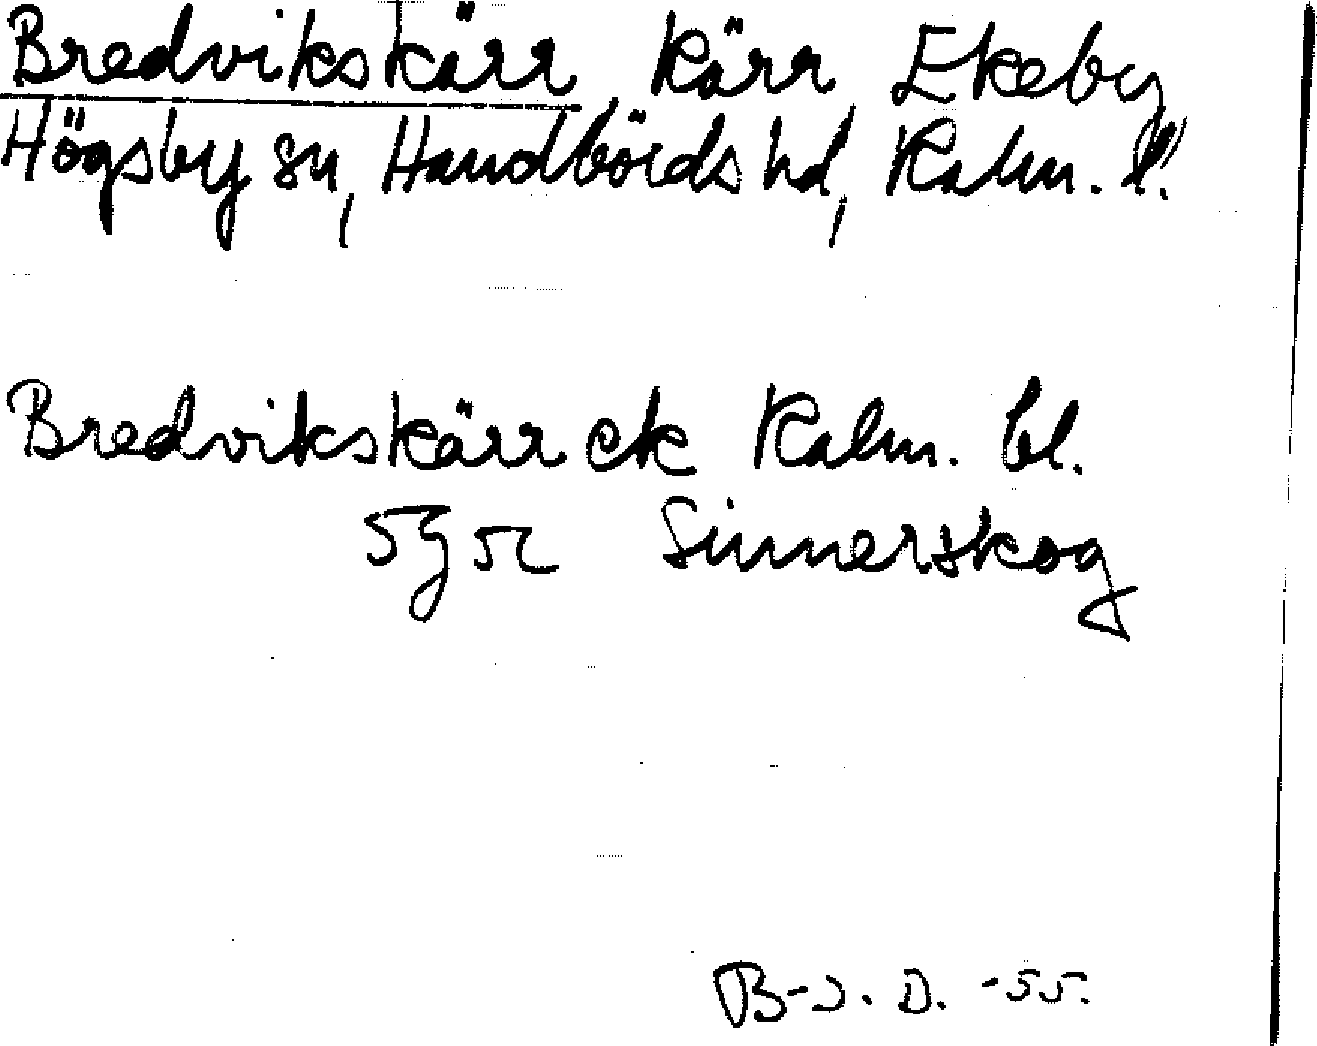 Bredvikskärr, Kärr, Ekeby
Högsby sn, Handbörds hd, Kalm. l.
Bredvikskärr ek Kalm. bl.
5g 5c Sinnerskog
B-J. D. -55.